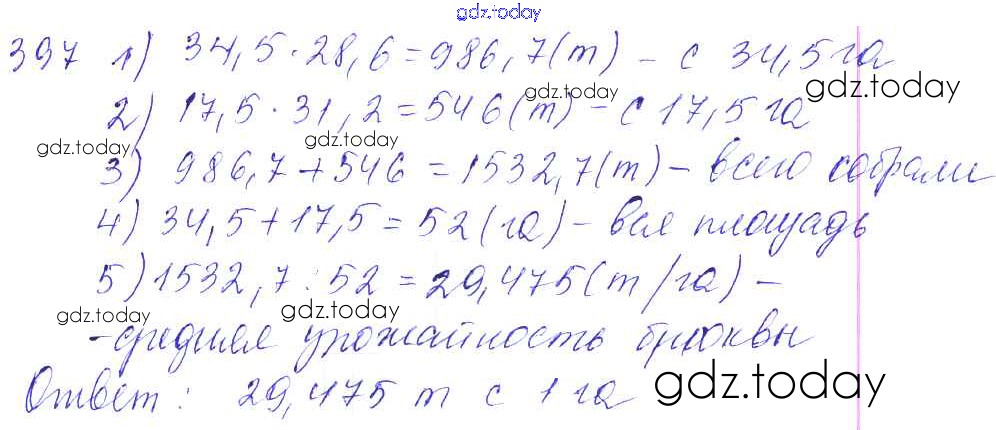 gdz.today
397 1) 34,5·28,6=986,7(т) – с 34,5 га
gdz.today
gdz.today
2) 17,5·31,2=546(т) – с 17,5 га
gdz.today
gdz.today
3) 986,7+546=1532,7(т) – всего собрали
4) 34,5+17,5=52(га) – вся площадь
5) 1532,7:52=29,475(т/га) –
gdz.today
gdz.today
-средняя урожайность брюквы
Ответ: 29,475 т с 1 га
gdz.today